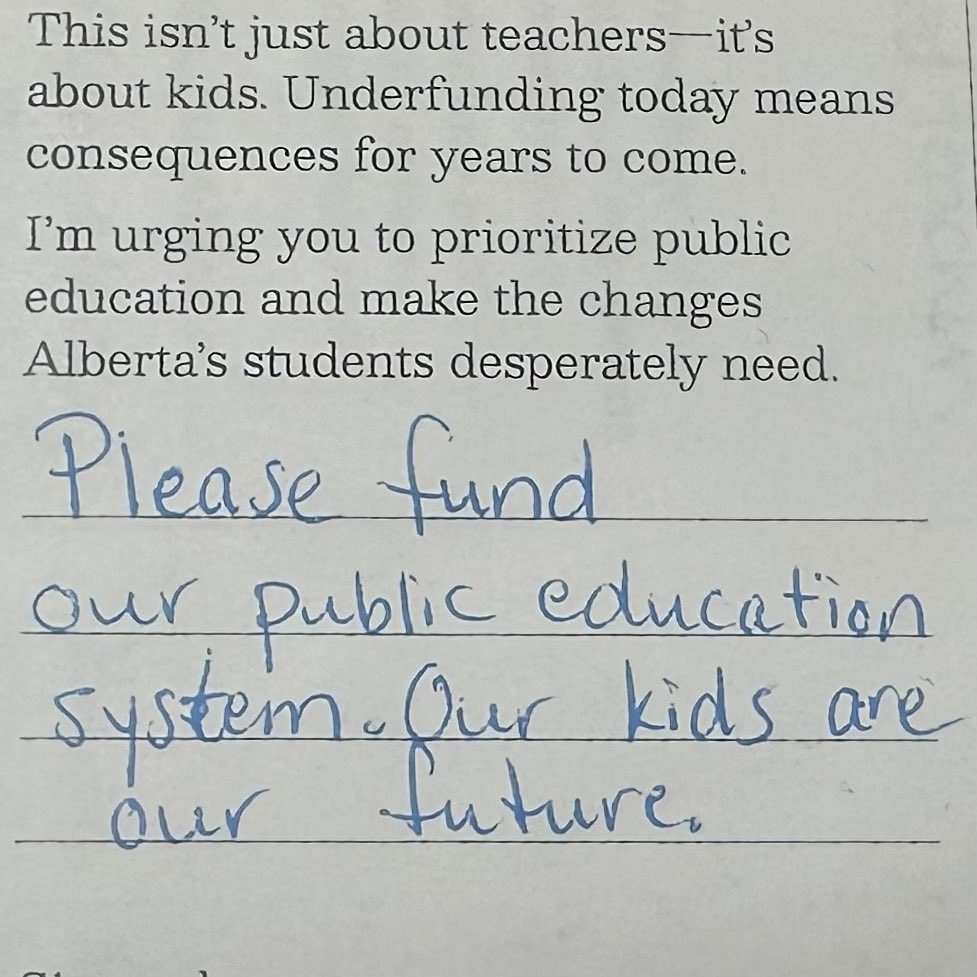 This isn't just about teachers—it's
about kids. Underfunding today means
consequences for years to come.
I'm urging you to prioritize public
education and make the changes
Alberta's students desperately need.
Please fund
our public education
system. Our kids are
our future.